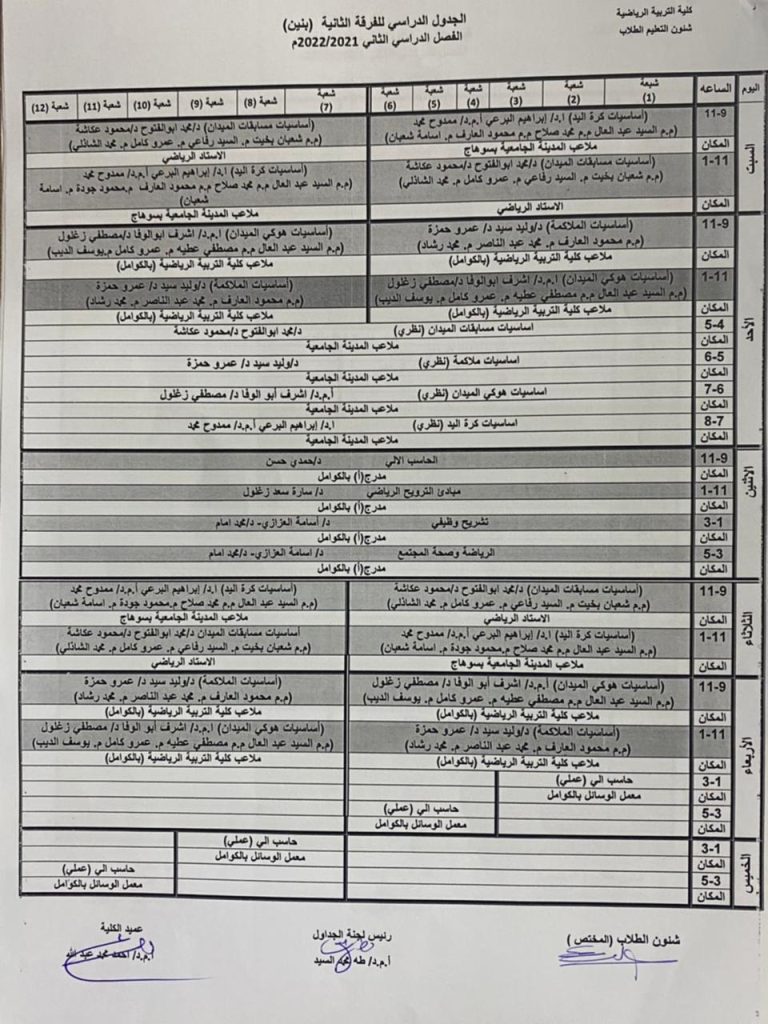 كلية التربية الرياضية
شئون التعليم الطلاب
الجدول الدراسي للفرقة الثانية (بنين)
الفصل الدراسي الثاني 2022/2021م
اليوم الساعه شعبة (1) شعبة (2) شعبة (3) شعبة (4) شعبة (5) شعبة (6) شعبة (7) شعبة (8) شعبة (9) شعبة (10) شعبة (11) شعبة (12)
السبت
11-9
(أساسيات كرة اليد) ا.د/ إبراهيم البرعي أ.م.د/ ممدوح محمد
(م.م السيد عبد العال م.م محمد صلاح م.م محمود العارف م. اسامة شعبان)
(أساسيات مسابقات الميدان) د/محمد ابوالفتوح د/محمود عكاشة
(م.م شعبان بخيت م. السيد رفاعي م. عمرو كامل م. محمد الشاذلي)
المكان ملاعب المدينة الجامعية بسوهاج الاستاد الرياضي
1-11
(أساسيات مسابقات الميدان) د/محمد ابوالفتوح د/محمود عكاشة
(م.م شعبان بخيت م. السيد رفاعي م. عمرو كامل م. محمد الشاذلي)
(أساسيات كرة اليد) ا.د/ إبراهيم البرعي أ.م.د/ ممدوح محمد
(م.م السيد عبد العال م.م محمد صلاح م.م محمود العارف م.محمود جودة م. اسامة
شعبان)
المكان الاستاد الرياضي ملاعب المدينة الجامعية بسوهاج
الأحد
11-9
(أساسيات الملاكمة) د/وليد سيد د/ عمرو حمزة
(م.م محمود العارف م. محمد عبد الناصر م. محمد رشاد)
(أساسيات هوكي الميدان) ا.م.د/ اشرف ابوالوفا د/مصطفي زغلول
(م.م السيد عبد العال م.م مصطفي عطيه م. عمرو كامل م.يوسف الديب)
المكان ملاعب كلية التربية الرياضية (بالكوامل) ملاعب كلية التربية الرياضية (بالكوامل)
1-11
(أساسيات هوكي الميدان) ا.م.د/ اشرف ابوالوفا د/مصطفي زغلول
(م.م السيد عبد العال م.م مصطفي عطيه م. عمرو كامل م. يوسف الديب)
(أساسيات الملاكمة) د/وليد سيد د/ عمرو حمزة
(م.م محمود العارف م. محمد عبد الناصر م. محمد رشاد)
المكان ملاعب كلية التربية الرياضية (بالكوامل) ملاعب كلية التربية الرياضية (بالكوامل)
5-4 اساسيات مسابقات الميدان (نظري) د/محمد ابوالفتوح د/محمود عكاشة
المكان ملاعب المدينة الجامعية
6-5 اساسيات ملاكمة (نظري) د/وليد سيد د/ عمرو حمزة
المكان ملاعب المدينة الجامعية
7-6 اساسيات هوكي الميدان (نظري) أ.م.د/ اشرف أبو الوفا د/ مصطفي زغلول
المكان ملاعب المدينة الجامعية
8-7 اساسيات كرة اليد (نظري) ا.د/ إبراهيم البرعي أ.م.د/ ممدوح محمد
المكان ملاعب المدينة الجامعية
الاثنين
11-9 الحاسب الالي د/حمدي حسن
المكان مدرج(أ) بالكوامل
1-11 مبادئ الترويح الرياضي د/ سارة سعد زغلول
المكان مدرج(أ) بالكوامل
3-1 تشريح وظيفي د/ أسامة العزازي- د/محمد امام
المكان مدرج(أ) بالكوامل
5-3 الرياضة وصحة المجتمع د/ اسامة العزازي- د/محمد امام
المكان مدرج(أ) بالكوامل
الثلاثاء
11-9
(أساسيات مسابقات الميدان) د/محمد ابوالفتوح د/محمود عكاشة
(م.م شعبان بخيت م. السيد رفاعي م. عمرو كامل م. محمد الشاذلي)
(أساسيات كرة اليد) ا.د/ إبراهيم البرعي أ.م.د/ ممدوح محمد
(م.م السيد عبد العال م.م محمد صلاح م.محمود جودة م. اسامة شعبان)
المكان الاستاد الرياضي ملاعب المدينة الجامعية بسوهاج
1-11
(أساسيات كرة اليد) ا.د/ إبراهيم البرعي أ.م.د/ ممدوح محمد
(م.م السيد عبد العال م.م محمد صلاح م.محمود جودة م. اسامة شعبان)
أساسيات مسابقات الميدان د/محمد ابوالفتوح د/محمود عكاشة
(م.م شعبان بخيت م. السيد رفاعي م. عمرو كامل م. محمد الشاذلي)
المكان ملاعب المدينة الجامعية بسوهاج الاستاد الرياضي
الأربعاء
11-9
(أساسيات هوكي الميدان) أ.م.د/ اشرف أبو الوفا د/ مصطفي زغلول
(م.م السيد عبد العال م.م مصطفي عطيه م. عمرو كامل م. يوسف الديب)
(أساسيات الملاكمة) د/وليد سيد د/ عمرو حمزة
(م.م محمود العارف م. محمد عبد الناصر م. محمد رشاد)
المكان ملاعب كلية التربية الرياضية (بالكوامل) ملاعب كلية التربية الرياضية (بالكوامل)
1-11
(أساسيات الملاكمة) د/وليد سيد د/ عمرو حمزة
(م.م محمود العارف م. محمد عبد الناصر م. محمد رشاد)
(أساسيات هوكي الميدان) ا.م.د/ اشرف أبو الوفا د/ مصطفي زغلول
(م.م السيد عبد العال م.م مصطفي عطيه م. عمرو كامل م. يوسف الديب)
المكان ملاعب كلية التربية الرياضية (بالكوامل) ملاعب كلية التربية الرياضية (بالكوامل)
3-1 حاسب الي (عملي)
المكان معمل الوسائل بالكوامل
5-3 حاسب الي (عملي)
المكان معمل الوسائل بالكوامل
الخميس
3-1 حاسب الي (عملي)
المكان معمل الوسائل بالكوامل
5-3 حاسب الي (عملي)
المكان معمل الوسائل بالكوامل
شئون الطلاب (المختص) رئيس لجنة الجداول عميد الكلية
أ.م.د/ طه محمد السيد أ.م.د/ احمد محمد عبد الله